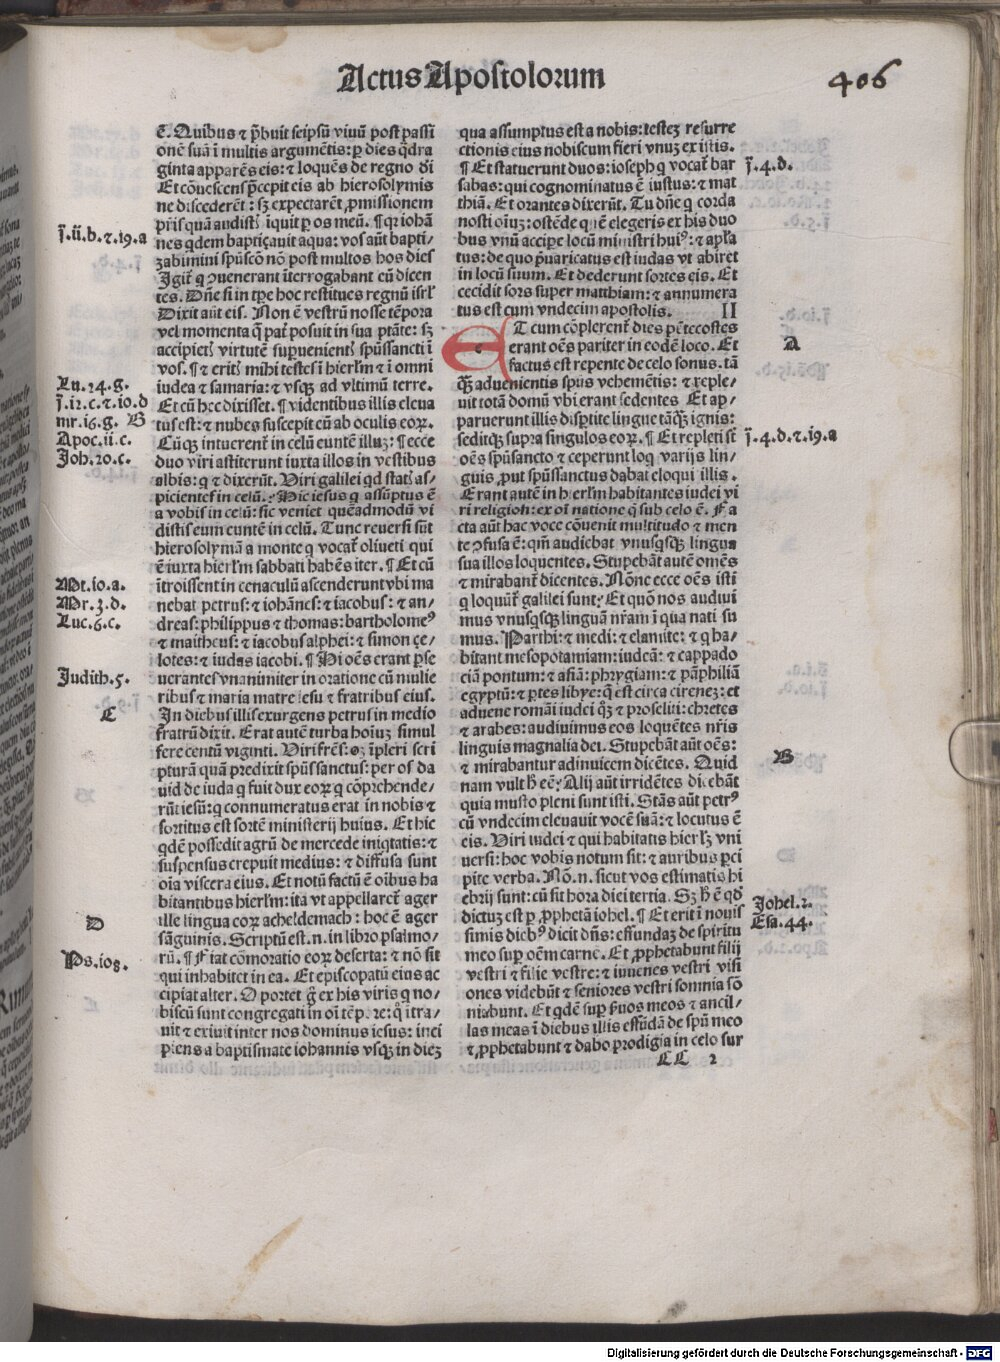 Actus Apostolorum
406
ē. Quibus ⁊ p̄buit seipsū vivū post passi
onē suā ī multis argumētis: ꝑ dies q̄dra
ginta apparēs eis: ⁊ loquēs de regno di
Et cōuescens p̄cepit eis ab hierosolymis
ne discederēt: sꝫ expectarēt ꝓmissionem
pr̄is quā audistꝭ iquit ꝑ os meū. ¶ qꝛ iohā
nes qdem baptiçauit aqua: vos aūt bapti/
zabimini spūscō nō post multos hos dies
Igit̄ q ↄuenerant īterrogabant cū dicen
tes. Dn̄e si in tꝑe hoc restitues regnū isrl̓
Dixit aūt eis. Non ē vestrū nosse tēpora
vel momenta q̄ pat̄ posuit in sua ptāte: sꝫ
accipietꝭ virtutē supuenientꝭ spūssancti ī
vos. ¶ ⁊ eritꝭ mihi testes ī hierl̓m ⁊ i omni
iudea ⁊ samaria: ⁊ vsqꝫ ad vltimū terre.
Et cū hec dixisset. ¶ videntibus illis eleua
tus est: ⁊ nubes suscepit cū ab oculis eoꝝ.
Cūqꝫ intuerent̄ in celū euntē illuꝫ: ¶ ecce
duo viri astiterunt iuxta illos in vestibus
albis: q ⁊ dixerūt. Viri galilei qd statꝭ as/
picientes in celū? Hic iesus q assūptus ē
a vobis in celū: sic veniet quēadmodū vi
distis eum euntē in celū. Tunc reuersi sūt
hierosolymā a monte q vocat̄ oliueti qui
ē iuxta hierl̓m sabbati habēs iter. ¶ Et cū
ītroissent in cenaculū ascenderunt vbi ma
nebat petrus: ⁊ iohānes: ⁊ iacobus: ⁊ an/
dreas: philippus ⁊ thomas: bartholomeꝰ
⁊ mattheus: ⁊ iacobus alphei: ⁊ simon çe/
lotes: ⁊ iudas iacobi. ¶ Hi oēs erant ꝑse
uerantes vnanimiter in oratione cū mulie
ribus ⁊ maria matre iesu ⁊ fratribus eius.
In diebus illis exurgens petrus in medio
fratrū dixit. Erat autē turba hoīuꝫ simul
fere centū viginti. Viri frēs: oꝫ īpleri scri
pturā quā predixit spūssanctus: per os da
uid de iuda q fuit dux eoꝝ q cōprehende/
rūt iesū: q connumeratus erat in nobis ⁊
sortitus est sortē ministerij huius. Et hic
qdē possedit agrū de mercede iniqtatis: ⁊
suspensus crepuit medius: ⁊ diffusa sunt
oīa viscera eius. Et notū factū ē oībus ha
bitantibus hierl̓m: ita vt appellaret̄ ager
ille lingua eoꝝ acheldemach: hoc ē ager
sāguinis. Scriptū est .n. in libro psalmo/
rū. ¶ Fiat cōmoratio eoꝝ deserta: ⁊ nō sit
qui inhabitet in ea. Et episcopatū eius ac
cipiat alter. Oportet g̃ ex his viris q no/
biscū sunt congregati in oī tēpore: q̊ itra/
uit ⁊ exiuit inter nos dominus iesus: inci
piens a baptismate iohannis vsqꝫ in dieꝫ
ī.ii.b.⁊.19.a
Lu.24.g.
ī.12.c.⁊.10.d
mr.16.g. B
Apoc.ii.c.
Joh.20.c.
Mt.10.a.
Mr.3.d.
Luc.6.c.
Judith.5.
C
D
Ps.108.
qua assumptus est a nobis: testeꝫ resurre
ctionis eius nobiscum fieri vnuꝫ ex istis.
¶ Et statuerunt duos: ioseph q vocat̄ bar
sabas: qui cognominatus ē iustus: ⁊ mat
thiā. Et orantes dixerūt. Tu dn̄e q corda
nosti oīuꝫ: ostēde quē elegeris ex his duo
bus vnū accipe locū ministri huiꝰ: ⁊ apl̓a
tus: de quo p̄uaricatus est iudas vt abiret
in locū suum. Et dederunt sortes eis. Et
cecidit sors super matthiam: ⁊ annumera
tus est cum vndecim apostolis. II
ET cum cōplerent̄ dies pētecostes
erant oēs pariter in eodē loco. Et
factus est repente de celo sonus. tā
qꝫ aduenientis spūs vehemētis: ⁊ reple/
uit totā domū vbi erant sedentes Et ap/
paruerunt illis dispertite lingue tāqꝫ ignis:
seditqꝫ supra singulos eoꝝ. ¶ Et repleti st̄
oēs spūsancto ⁊ ceperunt loq varijs lin/
guis, put spūssanctus dabat eloqui illis.
Erant autē in hierl̓m habitantes iudei vi
ri religiosi: ex oī natione q̄ sub celo ē. Fa
cta aūt hac voce cōuenit multitudo ⁊ men
te ↄfusa ē: qm̄ audiebat vnusqsqꝫ lingua
sua illos loquentes. Stupebāt autē omēs
⁊ mirabant̄ dicentes. Nōne ecce oēs isti
q loquūt̄ galilei sunt? Et quō nos audiui
mus vnusqsqꝫ linguā nr̄am ī qua nati su
mus. Parthi: ⁊ medi: ⁊ elamite: ⁊ q ha/
bitant mesopotamiam: iudeā: ⁊ cappado
ciā pontum: ⁊ asiā: phrygiam: ⁊ pāphiliā
egyptū: ⁊ ptes libye: q̄ est circa cireneꝫ: et
aduene romāi iudei qꝫ ⁊ proseliti: chretes
⁊ arabes: audiuimus eos loquētes nr̄is
linguis magnalia dei. Stupebāt aūt oēs:
⁊ mirabantur adinuicem dicētes. Quid
nam vult h̄ eē? Alij aūt irridētes dicebāt
quia musto pleni sunt isti. Stās aūt petrꝰ
cū vndecim eleuauit vocē suā: ⁊ locutus ē
eis. Viri iudei ⁊ qui habitatis hierl̓ꝫ vni
uersi: hoc vobis notum sit: ⁊ auribus ꝑci
pite verba. Nō .n. sicut vos estimatis hi
ebrij sunt: cū sit hora diei tertia. Sꝫ h̄ ē qd̓
dictuꝫ est ꝑ ꝓphetā iohel. ¶ Et erit ī nouis
simis diebꝰ dicit dn̄s: effundaꝫ de spiritu
meo suꝑ oēm carnē. Et ꝓphetabunt filij
vestri ⁊ filie vestre: ⁊ iuuenes vestri visi
ones videbūt ⁊ seniores vestri somnia sō
niabunt. Et qdē suꝑ ẜuos meos ⁊ ancil/
las meas ī diebus illis effūdā de spū meo
⁊ ꝓphetabunt ⁊ dabo prodigia in celo sur
CC 2
ī.4.d.
A
ī.4.d.⁊.19.a
B
Johel.2.
Esa.44.
Digitalisierung gefördert durch die Deutsche Forschungsgemeinschaft - DFG